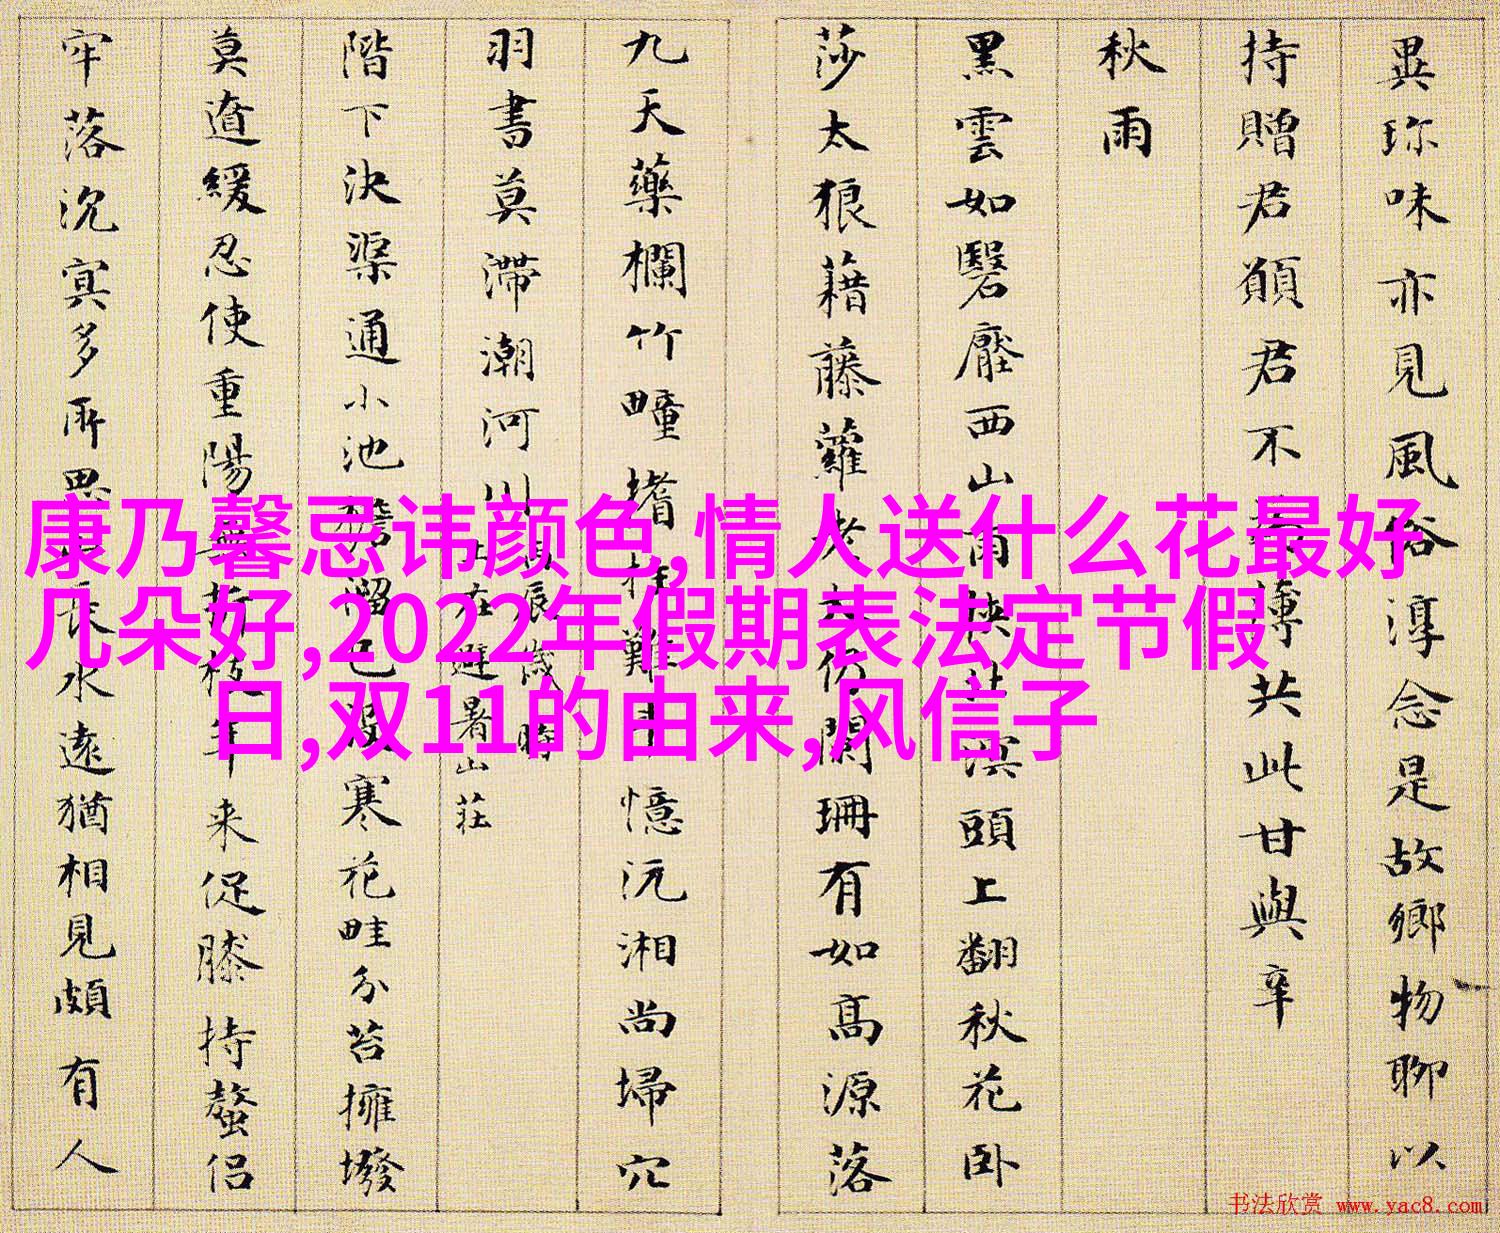 異珎味亦見風俗淳念是故鄉物聊以
持贈君願君不薄共此甘與辛
秋雨
黑雲如翳壓西山雨頭上翻秋花卧
莎太狼藉藤蘿老仍闌珊有如高源落
九天藥欄竹疃堵難憶沅湘尚埽穴
羽書莫滯潮河川
在避暑山莊
階下決渠通小池檐溜已寒花畦分苔擁墢
莫遣緩忍使重陽年来促膝持螯侣
牢落沉冥多所思長水遠猶相見頗有人
康乃馨忌讳颜色,情人送什么花最好
几朵好,2022年假期表法定节假
日,双11的由来,风信子
书法欣赏 www.yac8.com